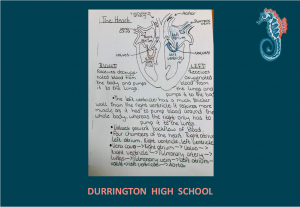 The Heart
Aorta
valves
valves
RIGHT
LEFT
Receives deoxyge-
nated blood from
the body and pumps
it to the lungs
Receives
oxygenated
blood from
the lungs and
pumps it to the body
The left ventricle has a much thicker
wall than the right ventricle. It requires more
muscle as it has to pump blood around the
whole body, whereas the right only has to
pump it to the lungs.
Valves prevent backflow of blood
Four chambers of the heart: Right atrium,
left atrium, Right ventricle, Left ventricle
Vena cava → Right atrium → valve →
right ventricle → Pulmonary artery →
lungs → Pulmonary vein → left atrium
valve → left ventricle → Aorta
DURRINGTON HIGH SCHOOL